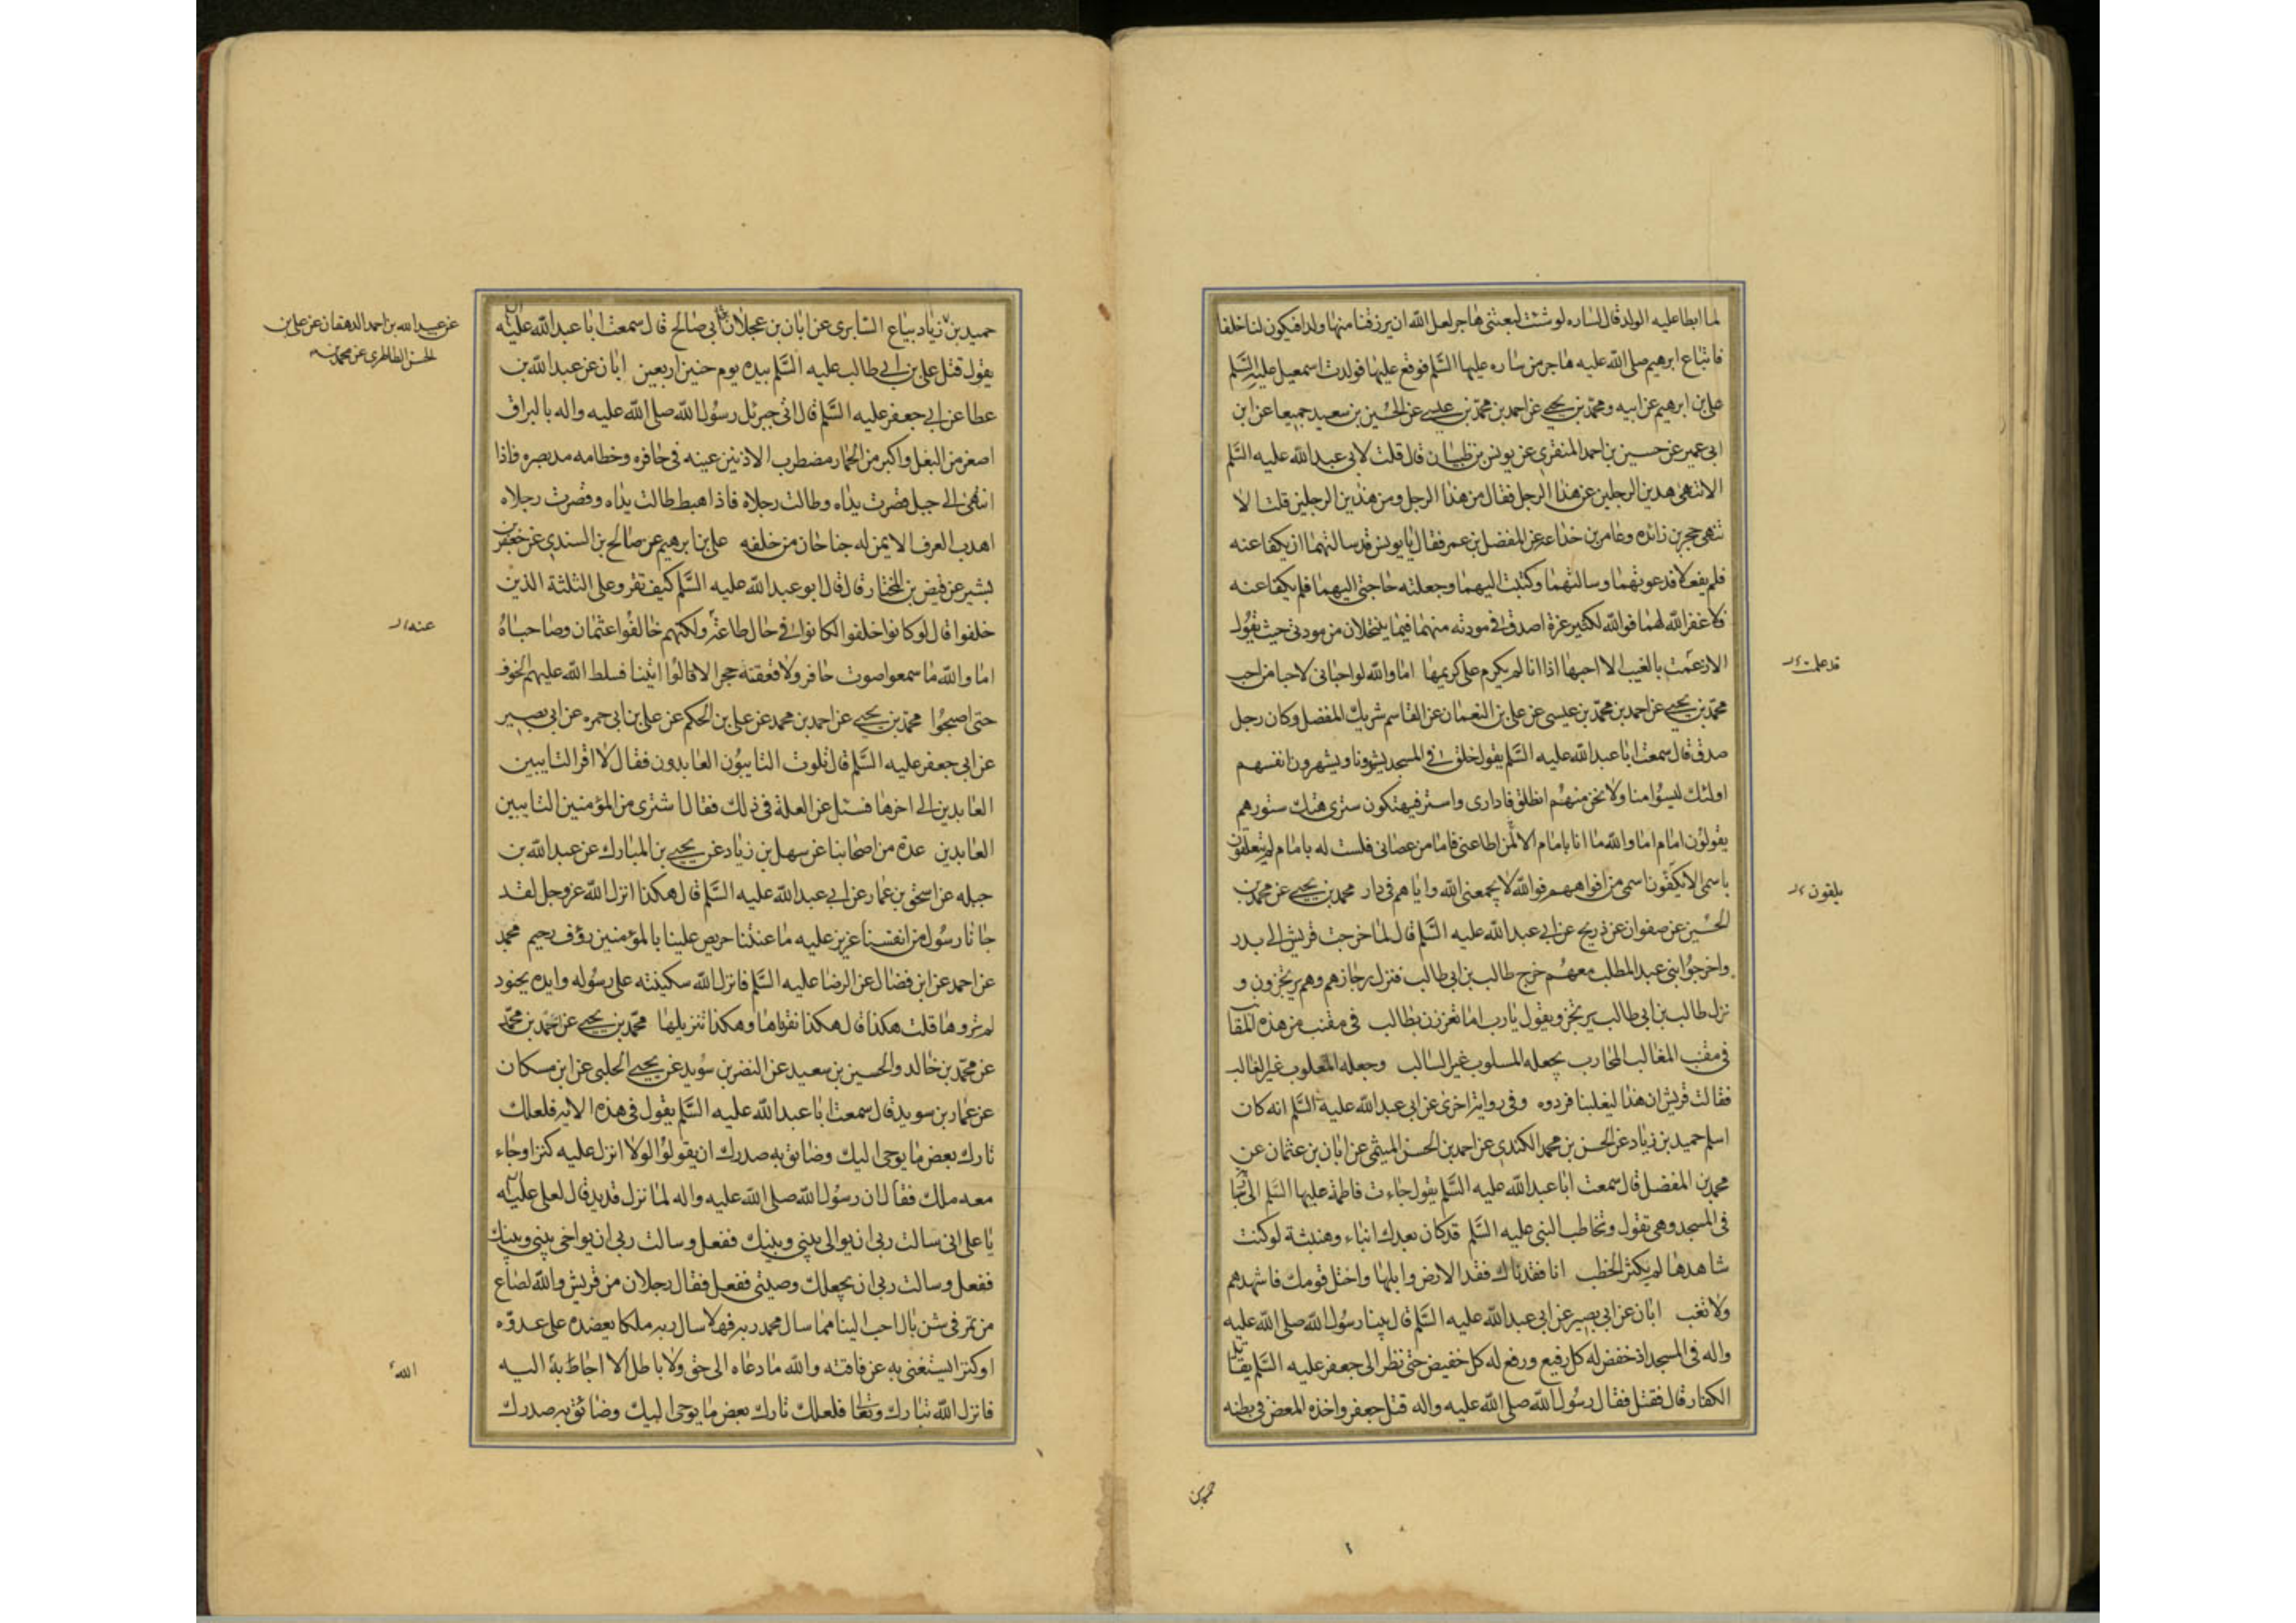 لما ابطا عليه الولد قال لساره لو شئت لبعتنى هاجر لعل الله ان يرزقنا منها ولدا فيكون لنا خلفا
فابتاع ابرهيم صلى الله عليه هاجر من ساره عليها السلم فوقع عليها فولدت اسمعيل عليه السلم
على بن ابرهيم عن ابيه ومحمد بن يحيى عن احمد بن محمد بن عيسى عن الحسين بن سعيد جميعا عن ابن
ابى عمير عن حسين بن احمد المنقرى عن يونس بن ظبيان قال قلت لابى عبد الله عليه السلم
الا تنهى هدين الرجلين عن هذا الرجل فقال من هذا الرجل ومن هذين الرجلين قلت الا
تنهى حجر بن زائده وعامر بن خداعه عن المفضل بن عمر فقال يا يونس قد سالتهما ان يكفا عنه
فلم يفعلا فدعوتهما وسالتهما وكتبت اليهما وجعلته حاجتى اليهما فلم يكفا عنه
فلا غفر الله لهما فوالله لكثير عزة اصدق فى مودته منهما فيما ينتحلان من مودتى حيث يقول
الا زعمت بالغيب الا احبها اذا انا لم يكرم على كريمها اما والله لو احبانى لاحبا من احب
قد علمت
محمد بن يحيى عن احمد بن محمد بن عيسى عن على بن النعمان عن القاسم شريك المفضل وكان رجل
صدق قال سمعت ابا عبد الله عليه السلم يقول خلق فى المسجد يشهرونا ويشهرون انفسهم
اولئك ليسوا منا ولا نحن منهم انطلق فادارى واستر فيهتكون سترى هتك ستورهم
يقولون امام اما والله ما انا بامام الا لمن اطاعنى فاما من عصانى فلست له بامام لم يتعلقون
باسمى الا يكفون اسمى من افواههم فوالله لا يجمعنى الله واياهم فى دار محمد بن يحيى عن محمد بن
يلقون
الحسين عن صفوان عن ذريح عن ابى عبد الله عليه السلم قال لما خرجت قريش الى بدر
واخرجوا بنى عبد المطلب معهم خرج طالب بن ابى طالب فنزل رجازهم وهم يرتجزون و
نزل طالب بن ابى طالب يرتجز ويقول يا رب اما تغززن بطالب فى مقنب من هذه المقانب
فى مقنب المغالب المحارب بجعله المسلوب غير السالب وجعله المغلوب غير الغالب
فقالت قريش ان هذا ليغلبنا فردوه وفى رواية اخرى عن ابى عبد الله عليه السلم انه كان
اسلم حميد بن زياد عن الحسن بن محمد الكندى عن احمد بن الحسن الميثمى عن ابان بن عثمان عن
محمد بن المفضل قال سمعت ابا عبد الله عليه السلم يقول جاءت فاطمة عليها السلم الى
فى المسجد وهى تقول وتخاطب النبى عليه السلم قد كان بعدك انباء وهنبثة لو كنت
شاهدها لم يكثر الخطب انا فقدناك فقد الارض وابلها واختل قومك فاشهدهم
ولا تغب ابان عن ابى بصير عن ابى عبد الله عليه السلم قال بينا رسول الله صلى الله عليه
واله فى المسجد اذ خفض له كل رفيع ورفع له كل خفيض حتى نظر الى جعفر عليه السلم يقاتل
الكفار قال فقتل فقال رسول الله صلى الله عليه واله قتل جعفر واخذه المعض فى بطنه
حميد بن زياد بياع السابرى عن ابان بن عجلان ابى صالح قال سمعت ابا عبد الله عليه
عن عبيد الله بن احمد الدهقان عن على بن
الحسن الطاطرى عن محمد بن
يقول قتل على بن ابى طالب عليه السلم بيده يوم حنين اربعين ابان عن عبد الله بن
عطا عن ابى جعفر عليه السلم قال اتى جبرئل رسول الله صلى الله عليه واله بالبراق
اصغر من البغل واكبر من الحمار مضطرب الاذنين عينه فى حافره وخطامه مد بصره فاذا
انتهى الى جبل قصرت يداه وطالت رجلاه فاذا هبط طالت يداه وقصرت رجلاه
اهدب العرف الايمن له جناحان من خلفه على بن ابرهيم عن صالح بن السندى عن جعفر بن
بشير عن فيض بن المختار قال قال ابو عبد الله عليه السلم كيف تقرو على الثلثة الذين
خلفوا قال لو كانوا خلفوا لكانوا فى حال طاعة ولكنهم خالفوا عثمان وصاحباه
اما والله ما سمعوا صوت حافر ولا قعقعة حجر الا قالوا اتينا فسلط الله عليهم الخوف
حتى اصبحوا محمد بن يحيى عن احمد بن محمد عن على بن الحكم عن على بن ابى حمزه عن ابى بصير
عن ابى جعفر عليه السلم قال تلوت التايبون العابدون فقال لا اقرا التايبين
العابدين الى اخرها فسئل عن العلة فى ذلك فقال اشترى من المؤمنين التايبين
العابدين عدة من اصحابنا عن سهل بن زياد عن يحيى بن المبارك عن عبد الله بن
جبله عن اسحق بن عمار عن ابى عبد الله عليه السلم قال هكذا انزل الله عز وجل لقد
جانا رسول من انفسنا عزيز عليه ما عنتنا حريص علينا بالمؤمنين رؤف رحيم محمد
عن احمد عن ابن فضال عن الرضا عليه السلم فانزل الله سكينته على رسوله وايده بجنود
لم تروها قلت هكذا قال هكذا نقراها وهكذا تنزيلها محمد بن يحيى عن احمد بن محمد
عن محمد بن خالد والحسين بن سعيد عن النضر بن سويد عن يحيى الحلبى عن ابن مسكان
عن عمار بن سويد قال سمعت ابا عبد الله عليه السلم يقول فى هذه الايه فلعلك
تارك بعض ما يوحى اليك وضائق به صدرك ان يقولوا لولا انزل عليه كنز او جاء
معه ملك فقال ان رسول الله صلى الله عليه واله لما نزل قديد قال لعلى عليه
يا على انى سالت ربى ان يوالى بينى وبينك ففعل وسالت ربى ان يواخى بينى وبينك
ففعل وسالت ربى ان يجعلك وصيتى ففعل فقال رجلان من قريش والله لصاع
من تمر فى شن بال احب الينا مما سال محمد ربه فهلا سال ربه ملكا يعضده على عدوه
او كنزا يستغنى به عن فاقته والله ما دعاه الى حق ولا باطل الا اجابه اليه
الله
فانزل الله تبارك وتعالى فلعلك تارك بعض ما يوحى اليك وضائق به صدرك